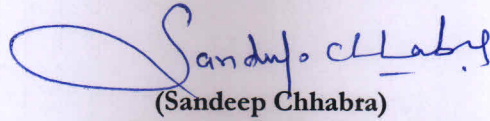 Sandeep Chhabra
(Sandeep Chhabra)